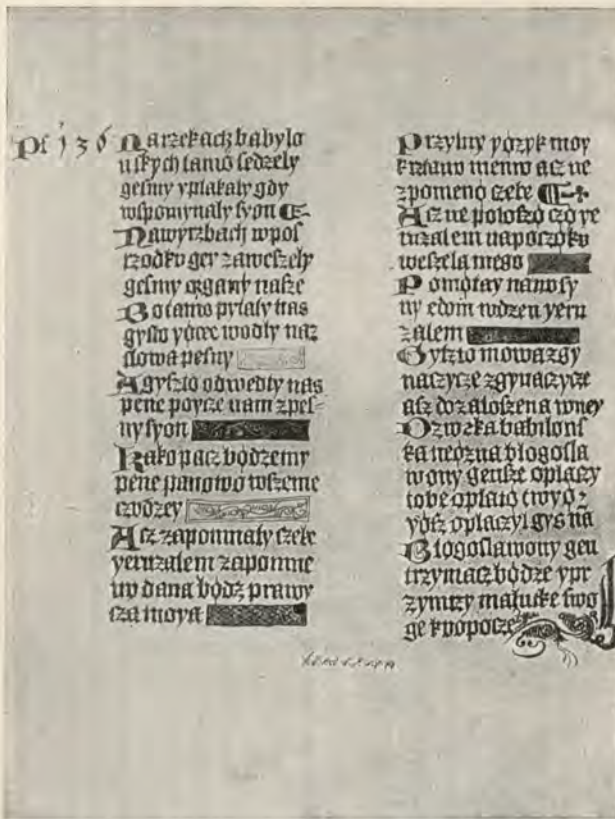 Pſ 136
Narzekach babylo
nſkych tamo ſedzely
geſmy yplakaly gdy
wſpomynaly ſyon
Nawyrzbach wpoſ
rzodku gey zaweſzely
geſmy organy naſze
Bo tamo pytaly nas
gyſto yøcce wodly nas
ſlowa peſny
Agyſzto odwedly nas
pene poycze nam zpeſ=
ny ſyon
Kako pacz bødzemy
pene panowo wſzeme
czudzey
Acz zapomnaly czebe
yeruzalem zapomne
ny dana bødz prawy
cza moya
Przylny yøzyk moy
acz ne
zpomenø czebe
Acz ne polozø czø ye
ruzalem napoczøtku
weſzela mego
Pomøtay na
ny edom wdzen yeru
zalem
Gyſzto mowa zgy
naczycze zgynaczycze
aſz do zaloſzena wney
Dzwøka babilonſ
ka neøzna blogoſla
wony genſze oplaczy
tobe oplatø twøyø
yøſz oplaczyl gys na
Blogoſlawony gen
trzymacz bødze ypr
malutke ſwo
ge kuopocze